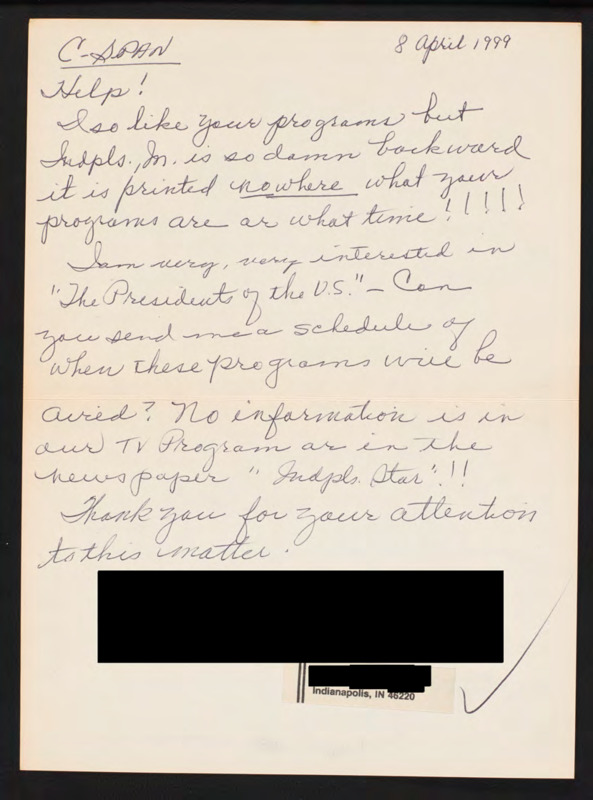 C-SPAN
8 April 1999
Help!
I so like your programs but
Indpls., In. is so damn backward
it is printed nowhere what your
programs are or what time!!!!!
I am very, very interested in
"The Presidents of the U.S." – Can
you send me a schedule of
when these programs will be
aired? No information is in
our TV Program or in the
newspaper "Indpls. Star".!!
Thank you for your attention
to this matter.
Indianapolis, IN 46220